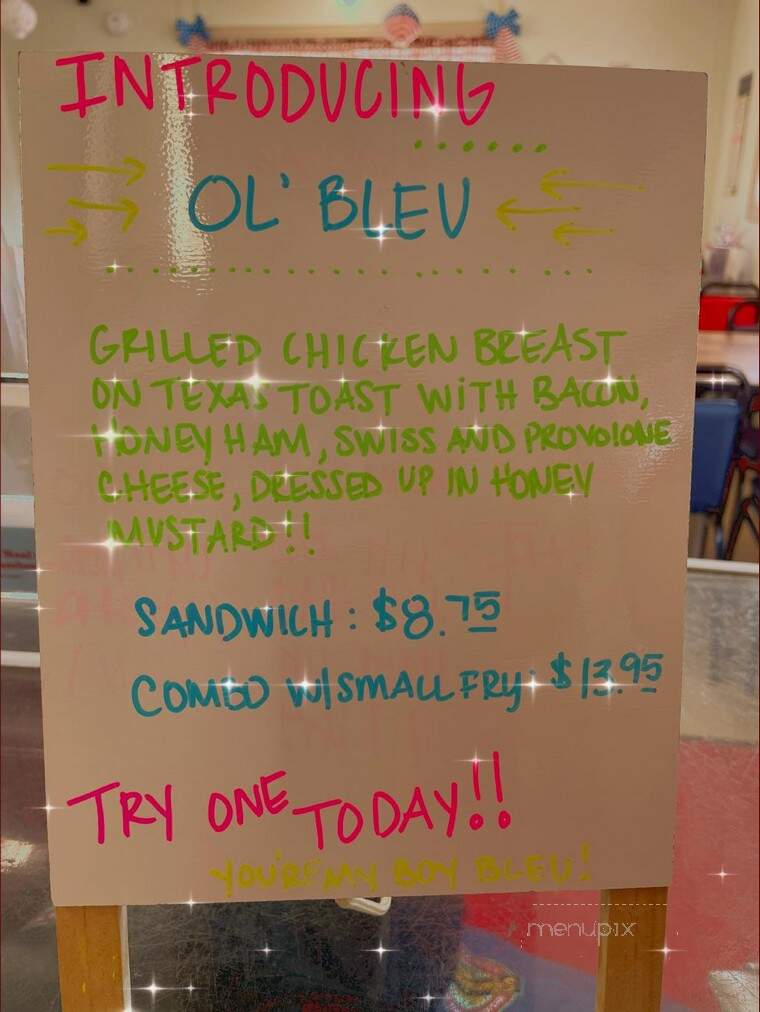 INTRODUCING
OL' BLEU
GRILLED CHICKEN BREAST
ON TEXAS TOAST WITH BACON,
HONEY HAM, SWISS AND PROVOLONE
CHEESE, DRESSED UP IN HONEY
MUSTARD!!
SANDWICH: $8.75
COMBO W/SMALL FRY: $13.95
TRY ONE TODAY!!
YOU'RE MY BOY BLEU!
menupix